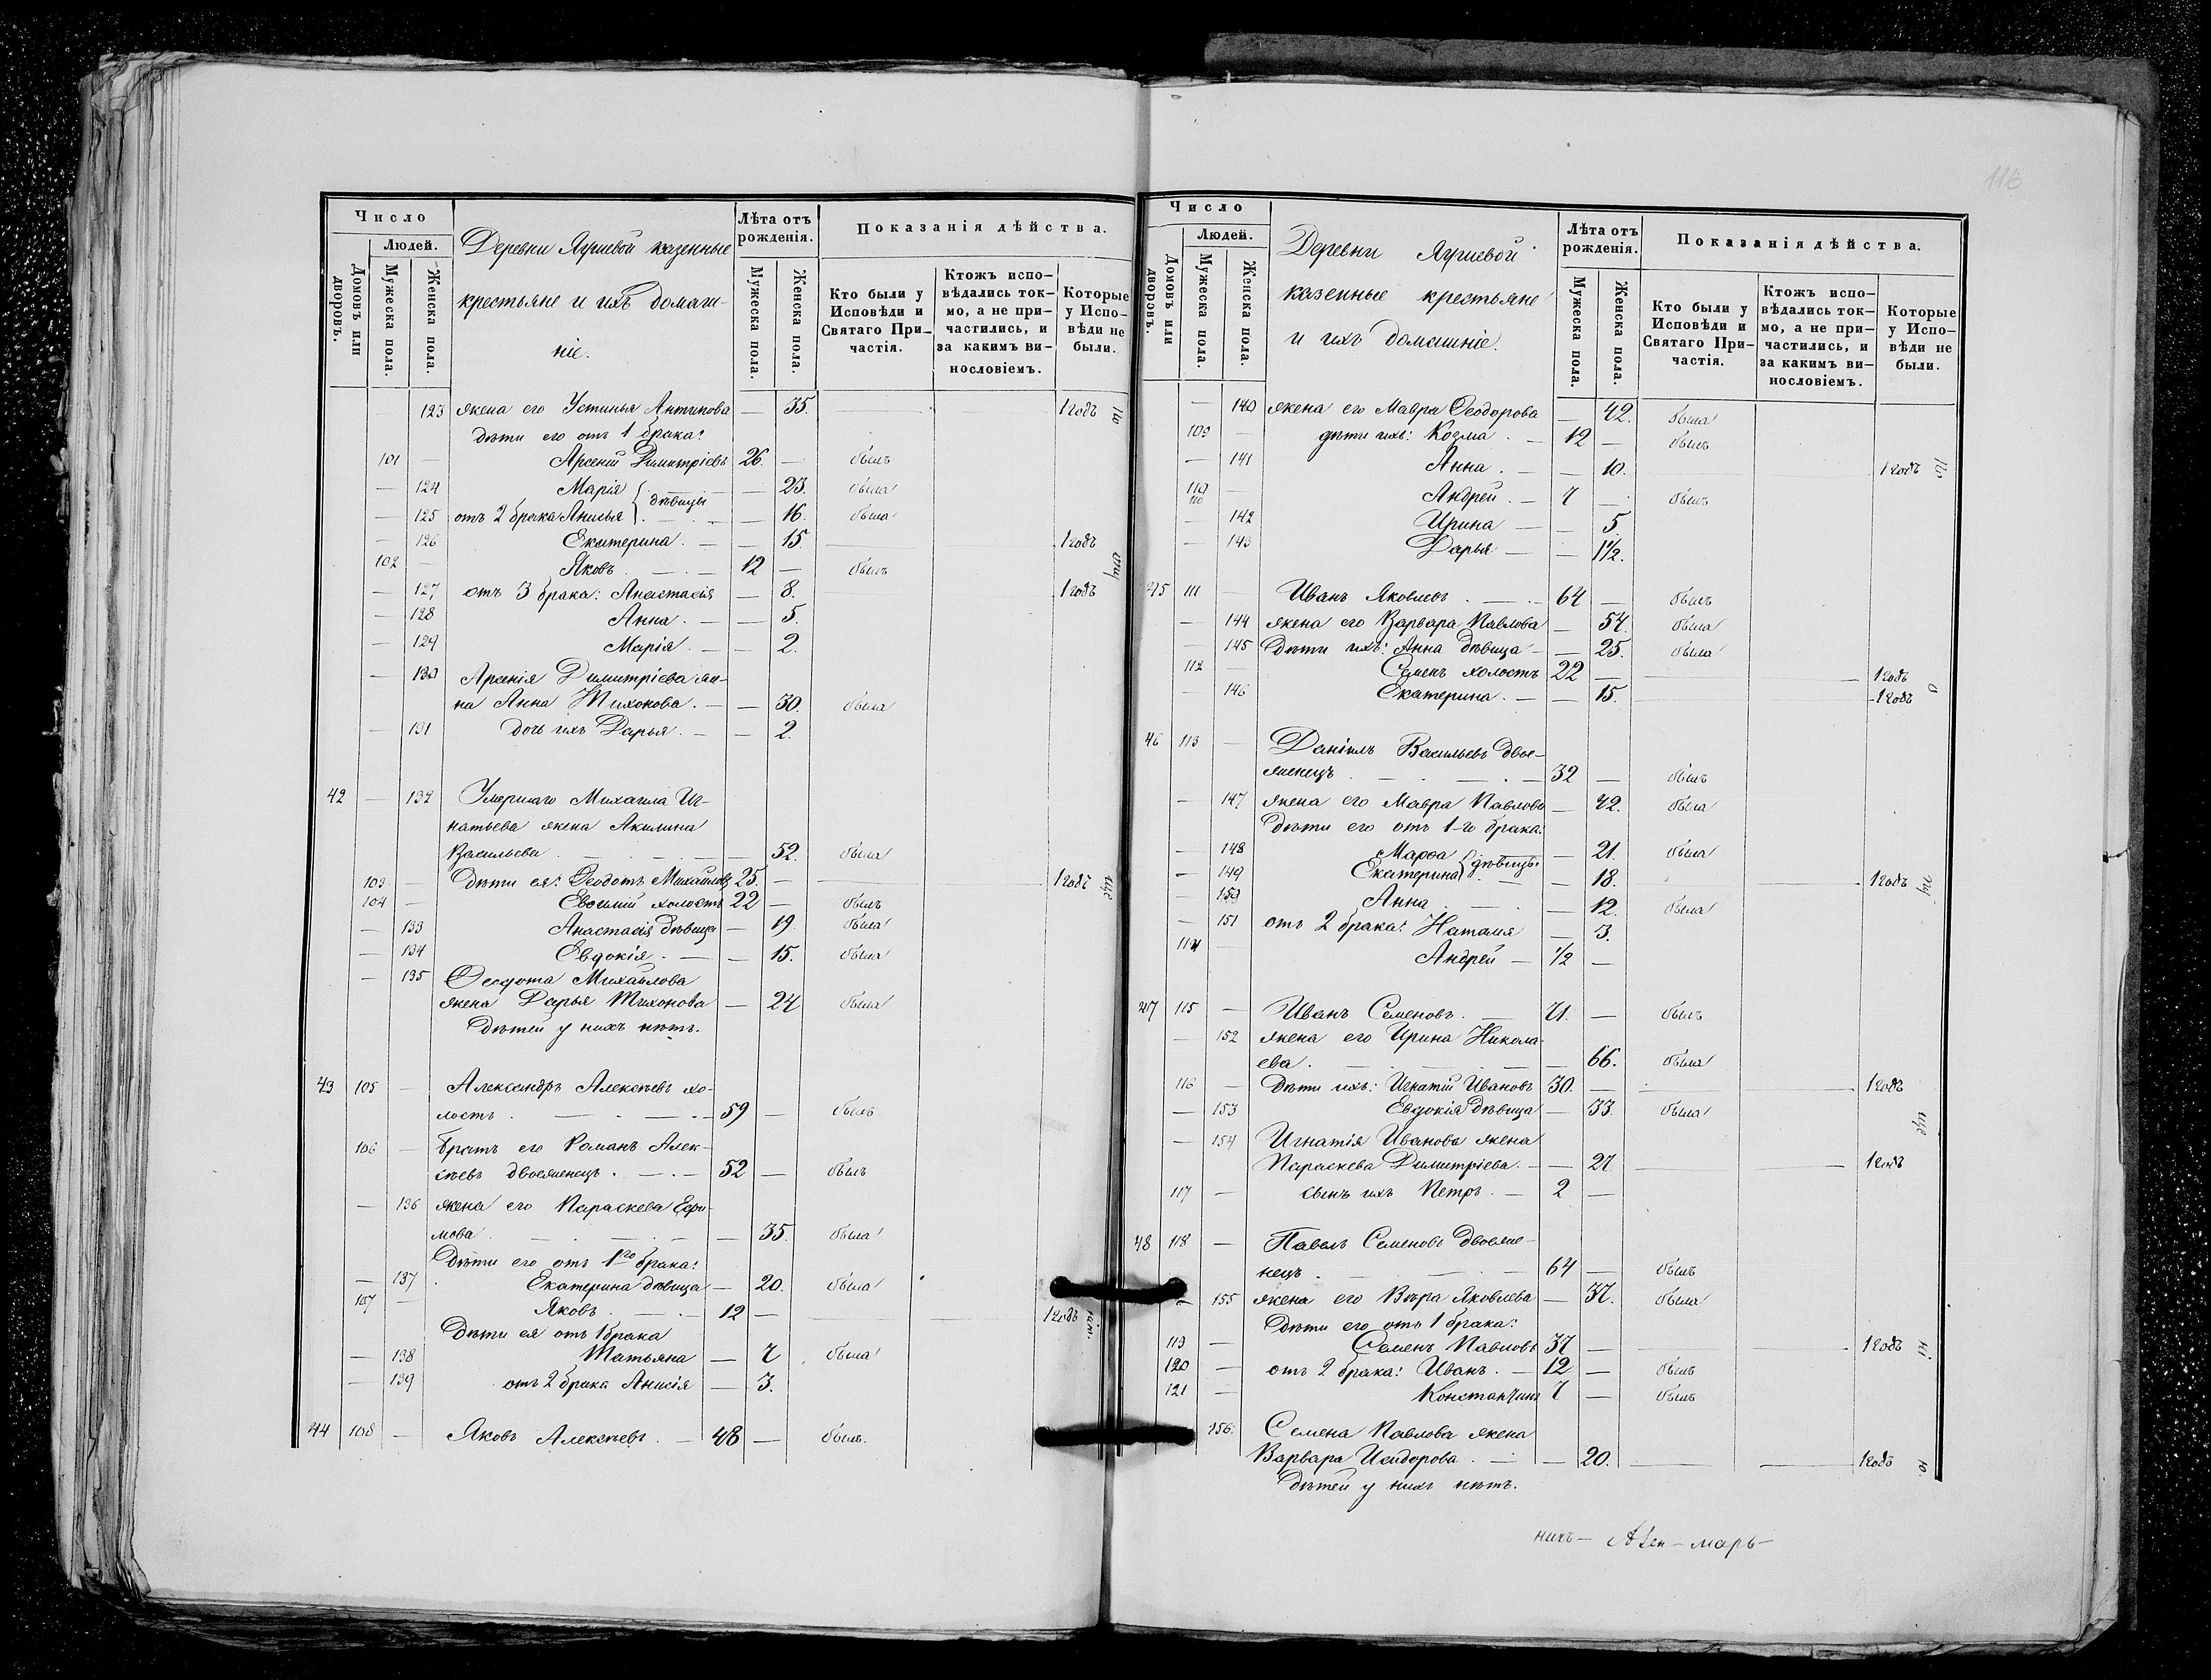 Число
Людей.
Домовъ или дворовъ.
Мужеска пола.
Женска пола.
Деревни казенные
крестьяне и ихъ домаш-
ніе.
Лѣта отъ рожденія.
Мужеска пола.
Женска пола.
Показанія дѣйства.
Кто были у Исповѣди и Святаго При-частія.
Ктожъ испо-вѣдались ток-мо, а не при-частились, и за какимъ ви-нословіемъ.
Которые у Испо-вѣди не были.
— 123 жена его Устинья Антипова — 35. 1 годъ
дѣти его отъ 1 брака:
101 — Арсеній Димитріевъ 26. — былъ
— 124 Марія — 23. была
дѣвицы
— 125 отъ 2 брака Анисья — 16. была
— 126 Екатерина. — — 15. 1 годъ
102 — Яковъ. — 12 — былъ
— 127 отъ 3 брака: Анастасія — 8. 1 годъ
— 128 Анна. — — 5.
— 129 Марія. — — 2.
— 130 Арсенія Димитріева же-
на Анна Тихонова. — — 30. была
— 131 дочь ихъ Дарья. — — 2.
42 — 132 Умершаго Михаила Иг-
натьева жена Акилина
Васильева — 52. была
103 — Дѣти ея: Ѳеодотъ Михайловъ 25. — 1 годъ
104 — Евѳимій холостъ 22 — былъ
— 133 Анастасія дѣвица — 19. была
— 134 Евдокія. — — 15. была
— 135 Ѳеодота Михайлова
жена Дарья Тихонова — 24 была
Дѣтей у нихъ нѣтъ.
43 105 — Александръ Алексѣевъ хо-
лостъ. — 59 — былъ
106 — Братъ его Романъ Алек-
сѣевъ двоеженецъ. — 52 — былъ
— 136 жена его Параскева Ефи-
мова — 35. была
Дѣти его отъ 1го брака:
— 137 Екатерина дѣвица — 20. была
107 — Яковъ. — 12 — 1 годъ
Дѣти ея отъ 1 брака
— 138 Татьяна — 7 была
— 139 отъ 2 брака Анисія — 3.
44 108 — Яковъ Алексѣевъ. — 48 — былъ.
116
Число
Людей.
Домовъ или дворовъ.
Мужеска пола.
Женска пола.
Деревни
казенные крестьяне
и ихъ домашніе.
Лѣта отъ рожденія.
Мужеска пола.
Женска пола.
Показанія дѣйства.
Кто были у Исповѣди и Святаго При-частія.
Ктожъ испо-вѣдались ток-мо, а не при-частились, и за какимъ ви-нословіемъ.
Которые у Испо-вѣди не были.
— 140 жена его Мавра Ѳеодорова — 42. была
109 — дѣти ихъ: Козма. — 12 — былъ
— 141 Анна. — — 10. 1 годъ
110 — Андрей. — 7 — былъ
— 142 Ирина — — 5
— 143 Дарья — — 1½.
45 111 — Иванъ Яковлевъ. — 64 — былъ
— 144 жена его Варвара Павлова — 54. была
— 145 Дѣти ихъ: Анна дѣвица — 25. была
112 — Семенъ холостъ 22 — 1 годъ
146 Екатерина. — — 15. 1 годъ
46 113 — Даніилъ Васильевъ двое-
женецъ. — 32 — былъ
— 147 жена его Мавра Павлова — 42. была
Дѣти его отъ 1-го брака:
— 148 Марѳа — 21. была
дѣвицы
— 149 Екатерина — 18. 1 годъ
— 150 Анна. — 12. была
— 151 отъ 2 брака: Наталія — 3.
114 — Андрей — ½ —
47 115 — Иванъ Семеновъ. — 71. — былъ
— 152 жена его Ирина Никола-
ева. — 66. была
116 — Дѣти ихъ: Игнатій Ивановъ 30. — 1 годъ
— 153 Евдокія дѣвица — 33. была
— 154 Игнатія Иванова жена
Параскева Димитріева. — — 27. 1 годъ
117 — сынъ ихъ Петръ. — 2 —
48 118 — Павелъ Семеновъ двоеже-
нецъ. — 64 — былъ
— 155 жена его Вѣра Яковлева — 37. была
Дѣти его отъ 1 брака:
119 — Семенъ Павловъ 37 — 1 годъ
120 — отъ 2 брака: Иванъ. — 12 — былъ
121 — Константинъ 7 — былъ
156. Семена Павлова жена
Варвара Исидорова. — — 20. 1 годъ
Дѣтей у нихъ нѣтъ.